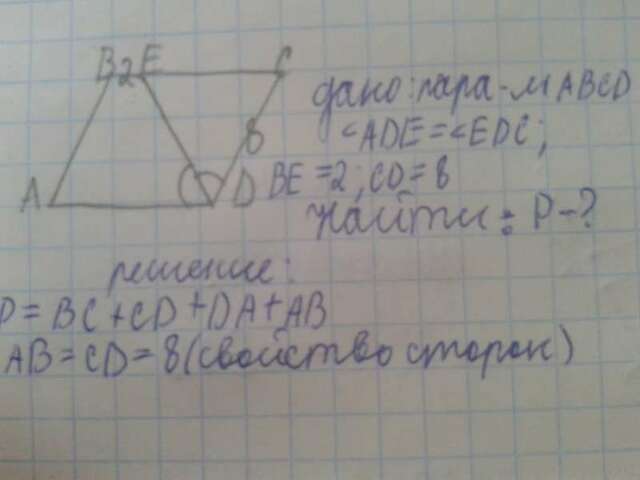 A
B 2 E
C
D
8
дано: пара-м ABCD
∠ADE = ∠EDC;
BE = 2; CD = 8
найти: P-?
решение:
P = BC + CD + DA + AB
AB = CD = 8 (свойство сторон)